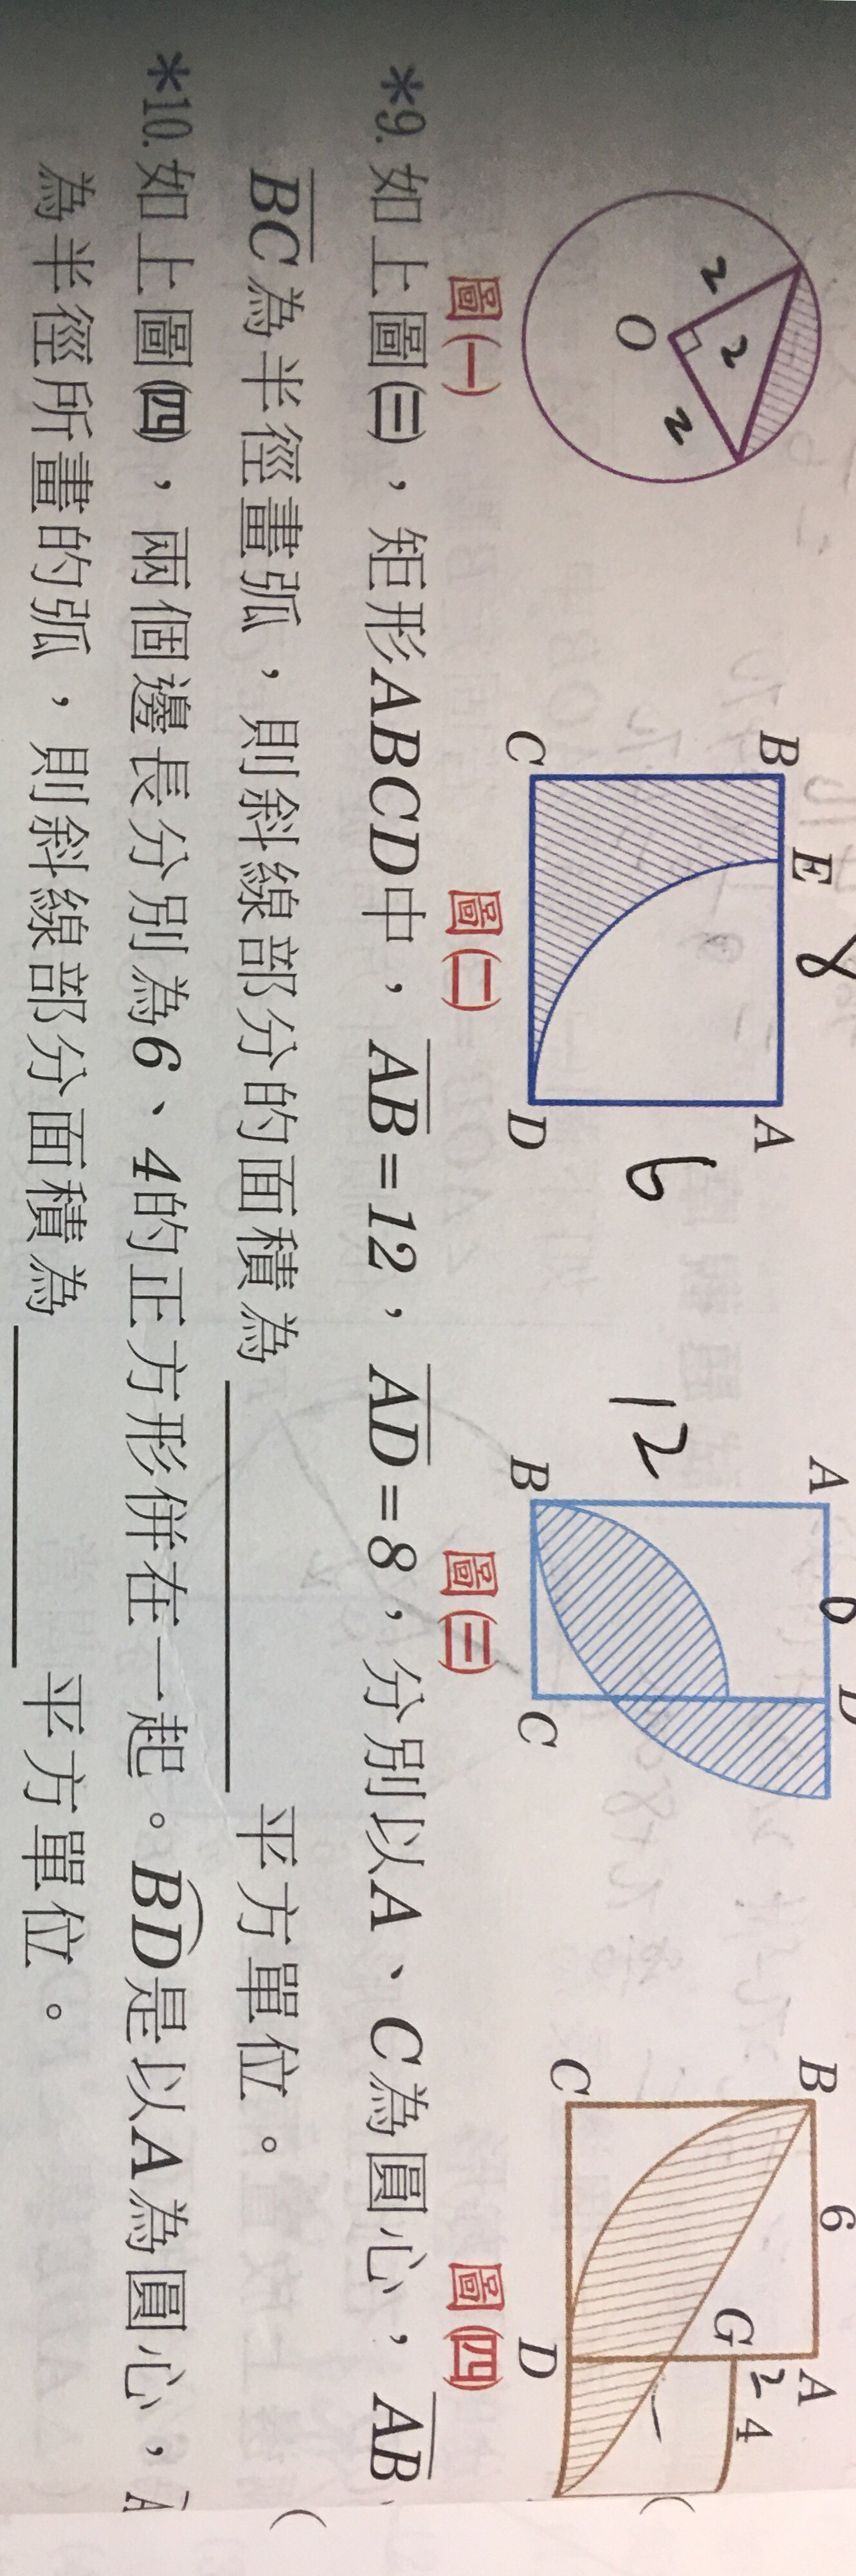 2
2
2
O
B
E
8
A
C
D
6
12
A
D
B
C
B
6
A
G
2
4
C
D
圖(一)
圖(二)
圖(三)
圖(四)
*9. 如上圖(三)，矩形ABCD中，AB=12，AD=8，分別以A、C為圓心，AB、
BC為半徑畫弧，則斜線部分的面積為 平方單位。
(
*10. 如上圖(四)，兩個邊長分別為6、4的正方形併在一起。BD是以A為圓心，A
為半徑所畫的弧，則斜線部分面積為 平方單位。
(